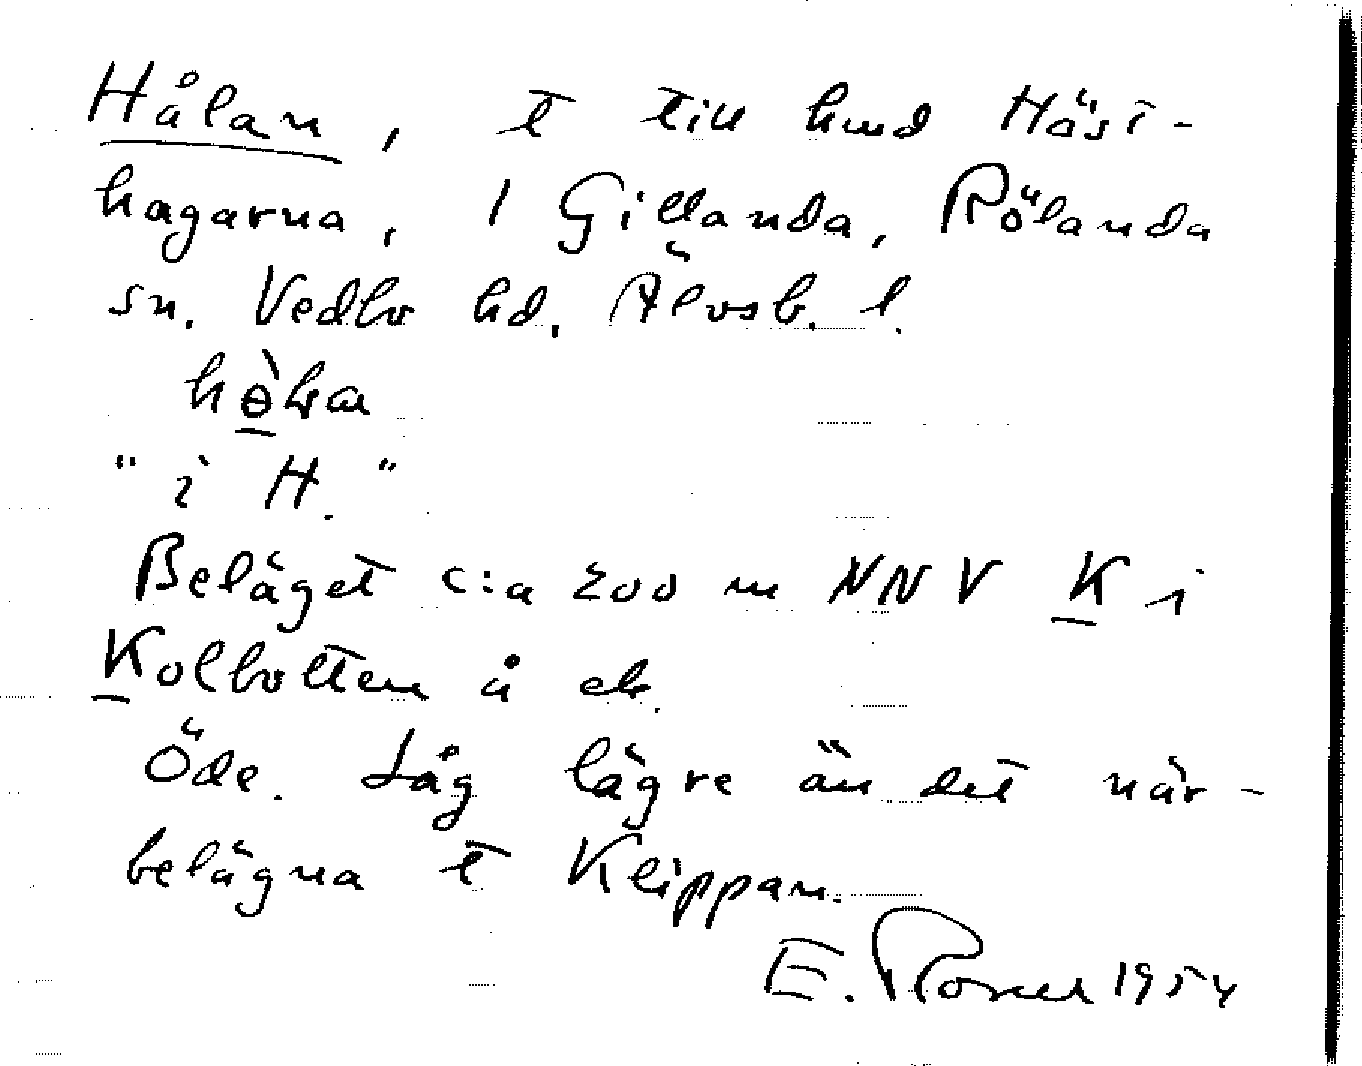 Hålan, t till hmd Häst-
hagarna, 1 Gillanda, Rölanda
sn. Vedbo hd. Älvsb. l.
"i H."
Beläget c:a 200 m NNV K i
Kolbotten å ek.
Öde. Låg lägre än det när-
belägna t Klippan.
E. Rosell 1954